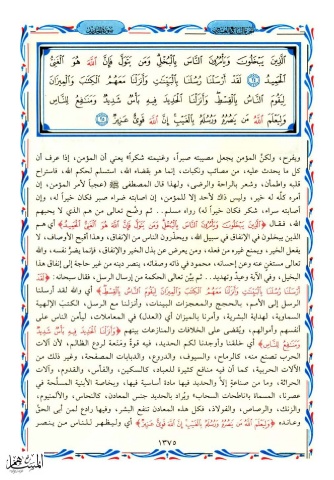 الَّذِينَ يَبْخَلُونَ وَيَأْمُرُونَ النَّاسَ بِالْبُخْلِ وَمَن يَتَوَلَّ فَإِنَّ اللَّهَ هُوَ الْغَنِيُّ
الْحَمِيدُ ۝٢٤ لَقَدْ أَرْسَلْنَا رُسُلَنَا بِالْبَيِّنَاتِ وَأَنزَلْنَا مَعَهُمُ الْكِتَابَ وَالْمِيزَانَ
لِيَقُومَ النَّاسُ بِالْقِسْطِ وَأَنزَلْنَا الْحَدِيدَ فِيهِ بَأْسٌ شَدِيدٌ وَمَنَافِعُ لِلنَّاسِ
وَلِيَعْلَمَ اللَّهُ مَن يَنصُرُهُ وَرُسُلَهُ بِالْغَيْبِ إِنَّ اللَّهَ قَوِيٌّ عَزِيزٌ ۝٢٥
ويفرح، ولكنَّ المؤمن يجعل مصيبته صبراً، وغنيمته شكراً؟ يعني أن المؤمن، إذا عرف أن
كل ما يحدث عليه، من مصائب ونكبات، إنما هو بقضاء الله، استسلم لحكم الله، فاستراح
قلبه واطمأن، وشعر بالراحة والرضى، ولهذا قال المصطفى ﷺ (عجباً لأمر المؤمن، إن
أمره كلَّه له خير، وليس ذاك لأحد إلا للمؤمن، إن أصابته ضراء صبر فكان خيراً له، وإن
أصابته سراء، شكر فكان خيراً له) رواه مسلم.. ثم وضَّح تعالى من هم الذي لا يحبهم
الله، فقال ﴿الَّذِينَ يَبْخَلُونَ وَيَأْمُرُونَ النَّاسَ بِالْبُخْلِ وَمَن يَتَوَلَّ فَإِنَّ اللَّهَ هُوَ الْغَنِيُّ الْحَمِيدُ﴾ أي هم
الذين يبخلون في الإنفاق في سبيل الله، ويحذِّرون الناس من الإنفاق، وهذا أقبح الأوصاف، لا
يفعل الخير، ويمنع غيره من فعله، ومن يعرض عن بذل الخير والإنفاق، فإنما يضرُّ نفسه، والله
تعالى مستغنٍ عنه وعن إحسانه، محمود في ذاته وصفاته، ينصر دينه من غير حاجة إلى إنفاق هذا
البخيل، وفي الآية وعيدٌ وتهديد.. ثم بيَّن تعالى الحكمة من إرسال الرسل، فقال سبحانه: ﴿لَقَدْ
أَرْسَلْنَا رُسُلَنَا بِالْبَيِّنَاتِ وَأَنزَلْنَا مَعَهُمُ الْكِتَابَ وَالْمِيزَانَ لِيَقُومَ النَّاسُ بِالْقِسْطِ﴾ أي والله لقد أرسلنا
الرسل إلى الأمم، بالحجج والمعجزات البينات، وأنزلنا مع الرسل، الكتبَ الإلهية
السماوية، لهداية البشرية، وأمرنا بالميزان أي (العدل) في المعاملات، ليأمن الناس على
أنفسهم وأموالهم، ويُقضى على الخلافات والمنازعات بينهم ﴿وَأَنزَلْنَا الْحَدِيدَ فِيهِ بَأْسٌ شَدِيدٌ
وَمَنَافِعُ لِلنَّاسِ﴾ أي خلقنا وأوجدنا لكم الحديد، فيه قوةٌ ومَنَعة لردع الظالم، لأن آلات
الحرب تصنع منه، كالرماح، والسيوف، والدروع، والدبابات المصفحة، وغير ذلك من
الآلات الحربية، كما أن فيه منافع كثيرة للعباد، كالسكين، والفأس، والقدوم، وآلات
الحراثة، وما من صناعةٍ إلَّا والحديد فيها مادة أساسية فيها، وبخاصة الأبنية المسلَّحة في
عصرنا، المسماة بناطحات السحاب، ويُراد بالحديد جنس المعادن، كالنحاس، والألمنيوم،
والزنك، والرصاص، والفولاذ، فكل هذه المعادن تنفع البشر، وفيها رادع لمن أبى الحق
وعانده ﴿وَلِيَعْلَمَ اللَّهُ مَن يَنصُرُهُ وَرُسُلَهُ بِالْغَيْبِ إِنَّ اللَّهَ قَوِيٌّ عَزِيزٌ﴾ أي وليظهر للناس من ينصر
١٣٧٥